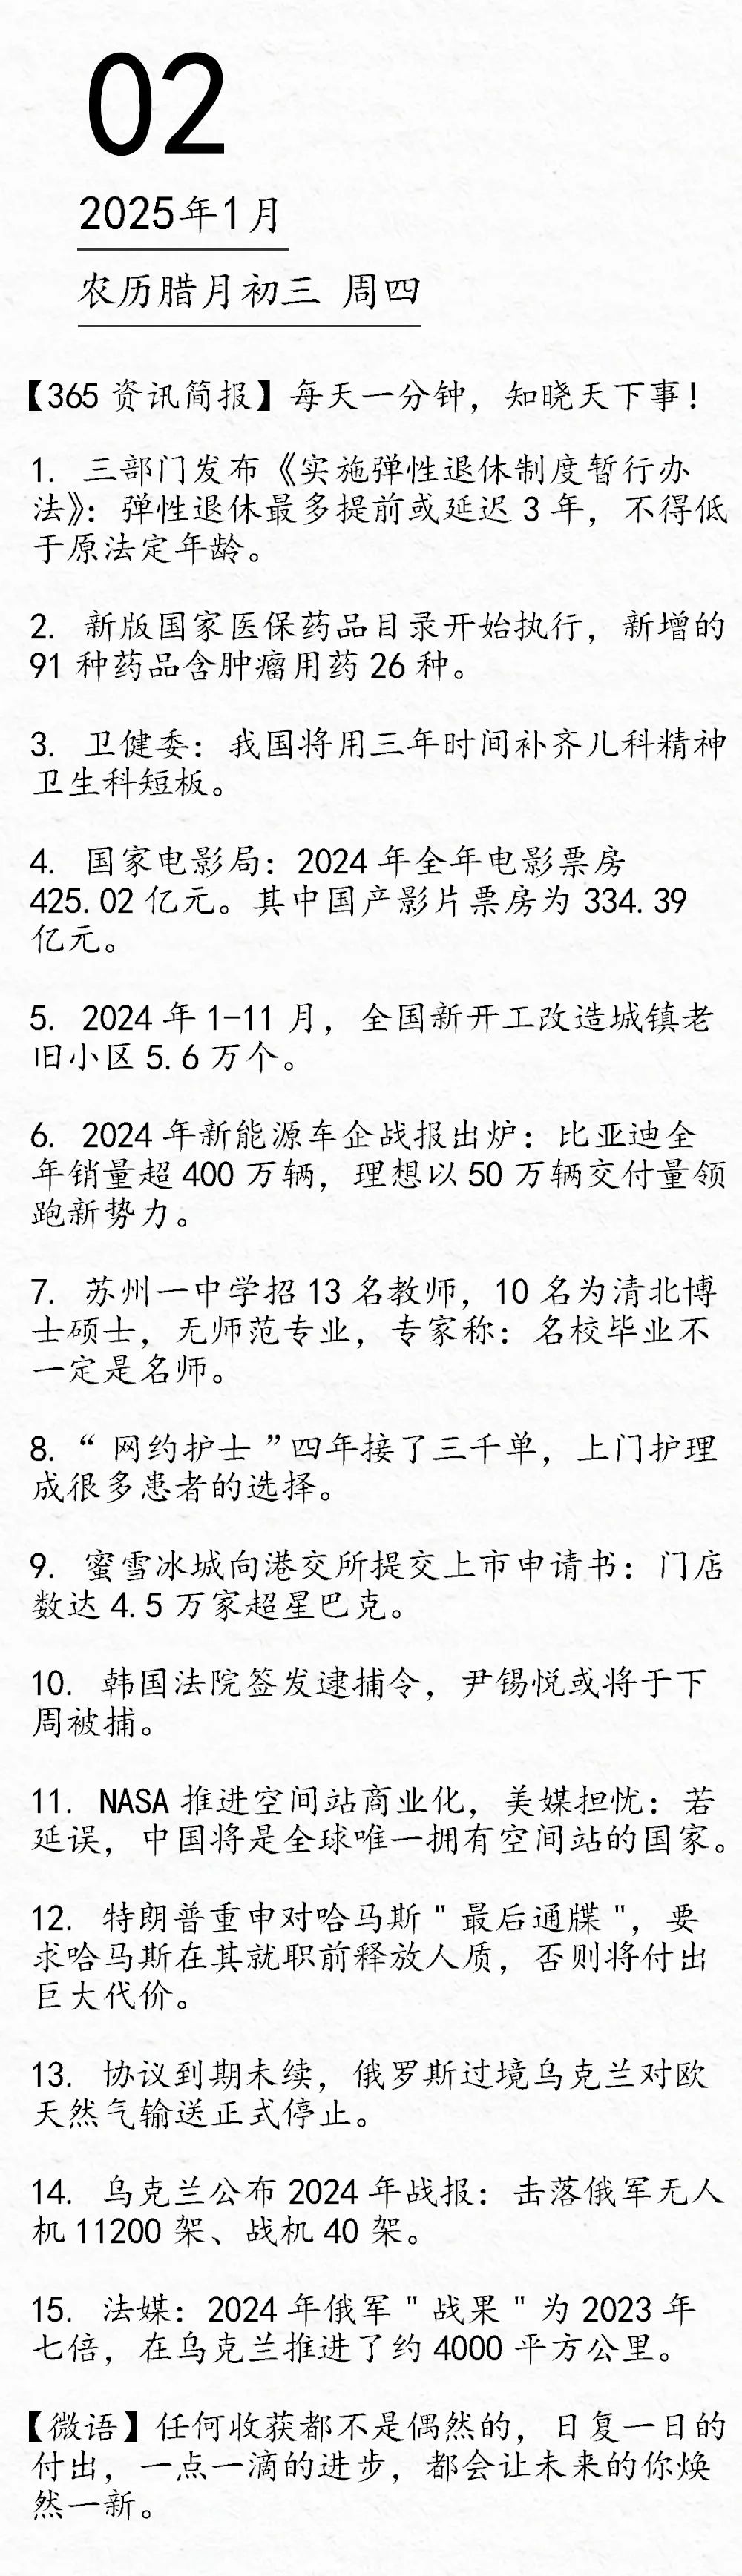 02
2025年1月
农历腊月初三 周四
【365 资讯简报】每天一分钟，知晓天下事！
1. 三部门发布《实施弹性退休制度暂行办
法》：弹性退休最多提前或延迟 3 年，不得低
于原法定年龄。
2. 新版国家医保药品目录开始执行，新增的
91 种药品含肿瘤用药 26 种。
3. 卫健委：我国将用三年时间补齐儿科精神
卫生科短板。
4. 国家电影局：2024 年全年电影票房
425.02 亿元。其中国产影片票房为 334.39
亿元。
5. 2024 年 1-11 月，全国新开工改造城镇老
旧小区 5.6 万个。
6. 2024 年新能源车企战报出炉：比亚迪全
年销量超 400 万辆，理想以 50 万辆交付量领
跑新势力。
7. 苏州一中学招 13 名教师，10 名为清北博
士硕士，无师范专业，专家称：名校毕业不
一定是名师。
8. “ 网约护士 ”四年接了三千单，上门护理
成很多患者的选择。
9. 蜜雪冰城向港交所提交上市申请书：门店
数达 4.5 万家超星巴克。
10. 韩国法院签发逮捕令，尹锡悦或将于下
周被捕。
11. NASA 推进空间站商业化，美媒担忧：若
延误，中国将是全球唯一拥有空间站的国家。
12. 特朗普重申对哈马斯 " 最后通牒 "，要
求哈马斯在其就职前释放人质，否则将付出
巨大代价。
13. 协议到期未续，俄罗斯过境乌克兰对欧
天然气输送正式停止。
14. 乌克兰公布 2024 年战报：击落俄军无人
机 11200 架、战机 40 架。
15. 法媒：2024 年俄军 " 战果 " 为 2023 年
七倍，在乌克兰推进了约 4000 平方公里。
【微语】任何收获都不是偶然的，日复一日的
付出，一点一滴的进步，都会让未来的你焕
然一新。